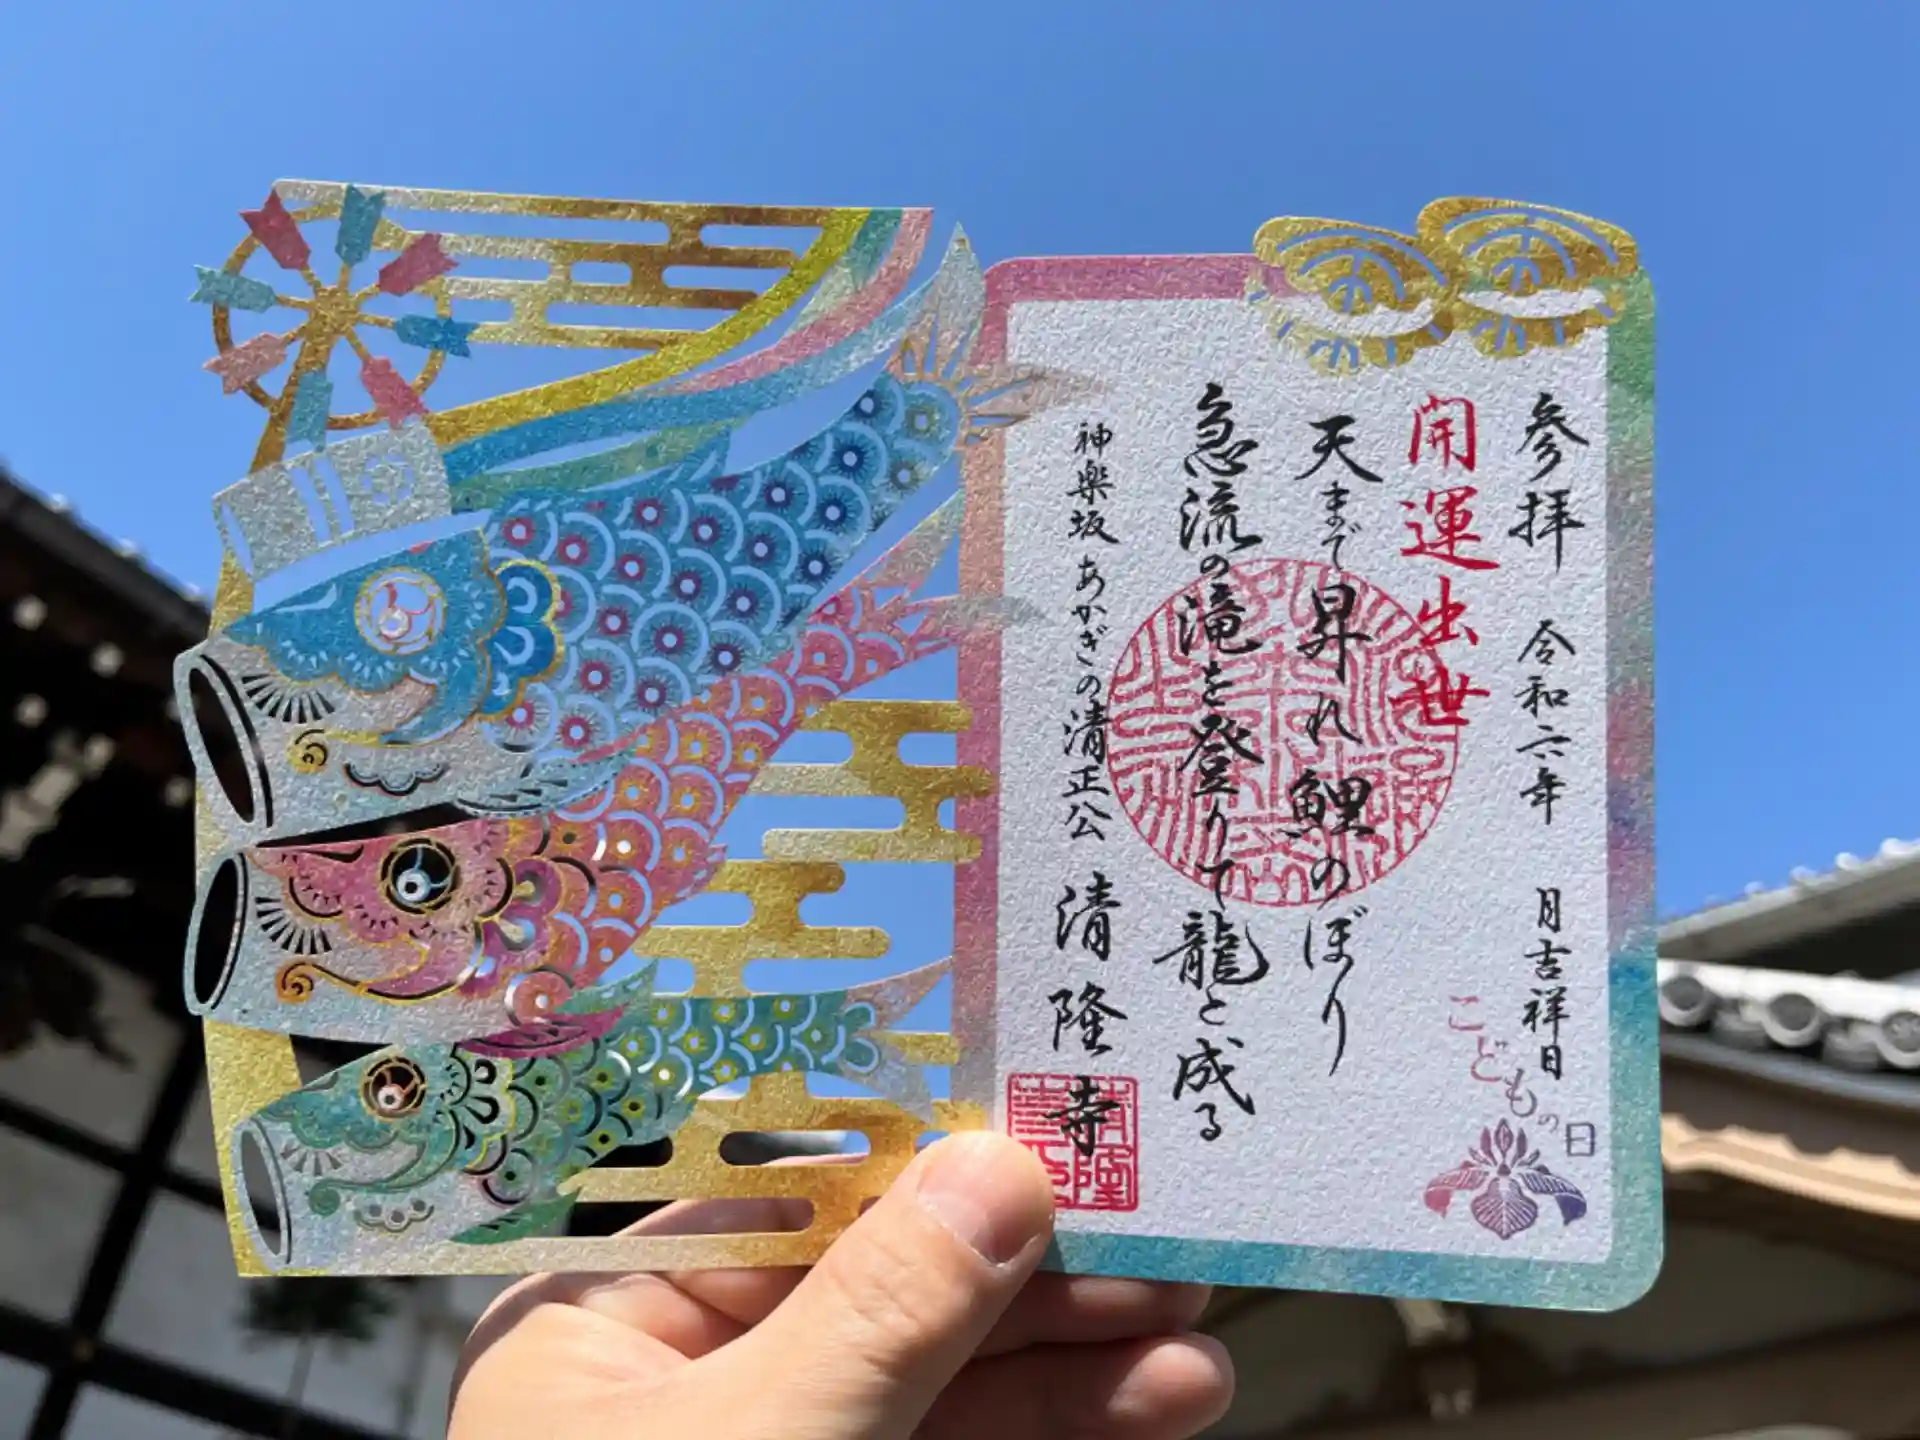 参拝 令和六年 月吉祥日
開運出世
こどもの日
天まで昇れ鯉のぼり
急流の滝を登りて龍と成る
神楽坂 あかぎの清正公 清隆寺